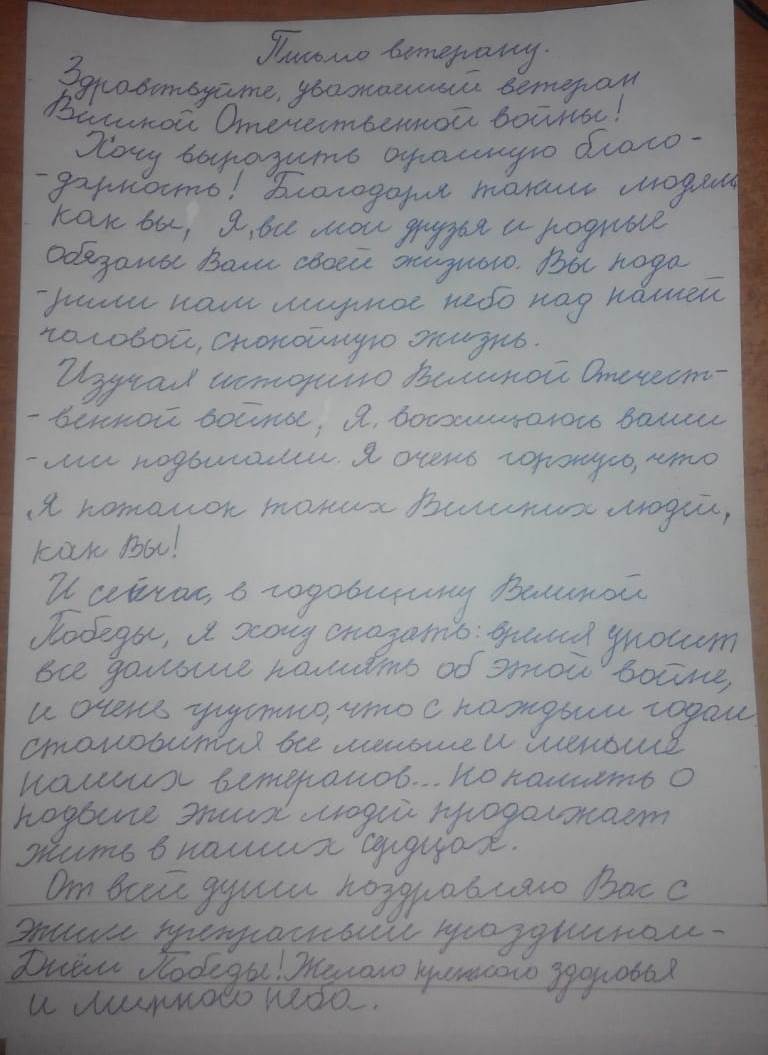 Письмо ветерану.
Здравствуйте, уважаемый ветеран
Великой Отечественной войны!
Хочу выразить огромную благо-
-дарность! Благодаря таким людям
как вы, Я, все мои друзья и родные
обязаны Вам своей жизнью. Вы пода
-рили нам мирное небо над нашей
головой, спокойную жизнь.
Изучая историю Великой Отечест-
-венной войны, Я, восхищаюсь ваши
-ми подвигами. Я очень горжусь, что
Я потомок таких Великих людей,
как Вы!
И сейчас, в годовщину Великой
Победы, я хочу сказать: время уносит
все дальше память об этой войне,
и очень грустно, что с каждым годом
становится все меньше и меньше
наших ветеранов... Но память о
подвиге этих людей продолжает
жить в наших сердцах.
От всей души поздравляю Вас с
этим прекрасным праздником -
Днём Победы! Желаю крепкого здоровья
и мирного неба.